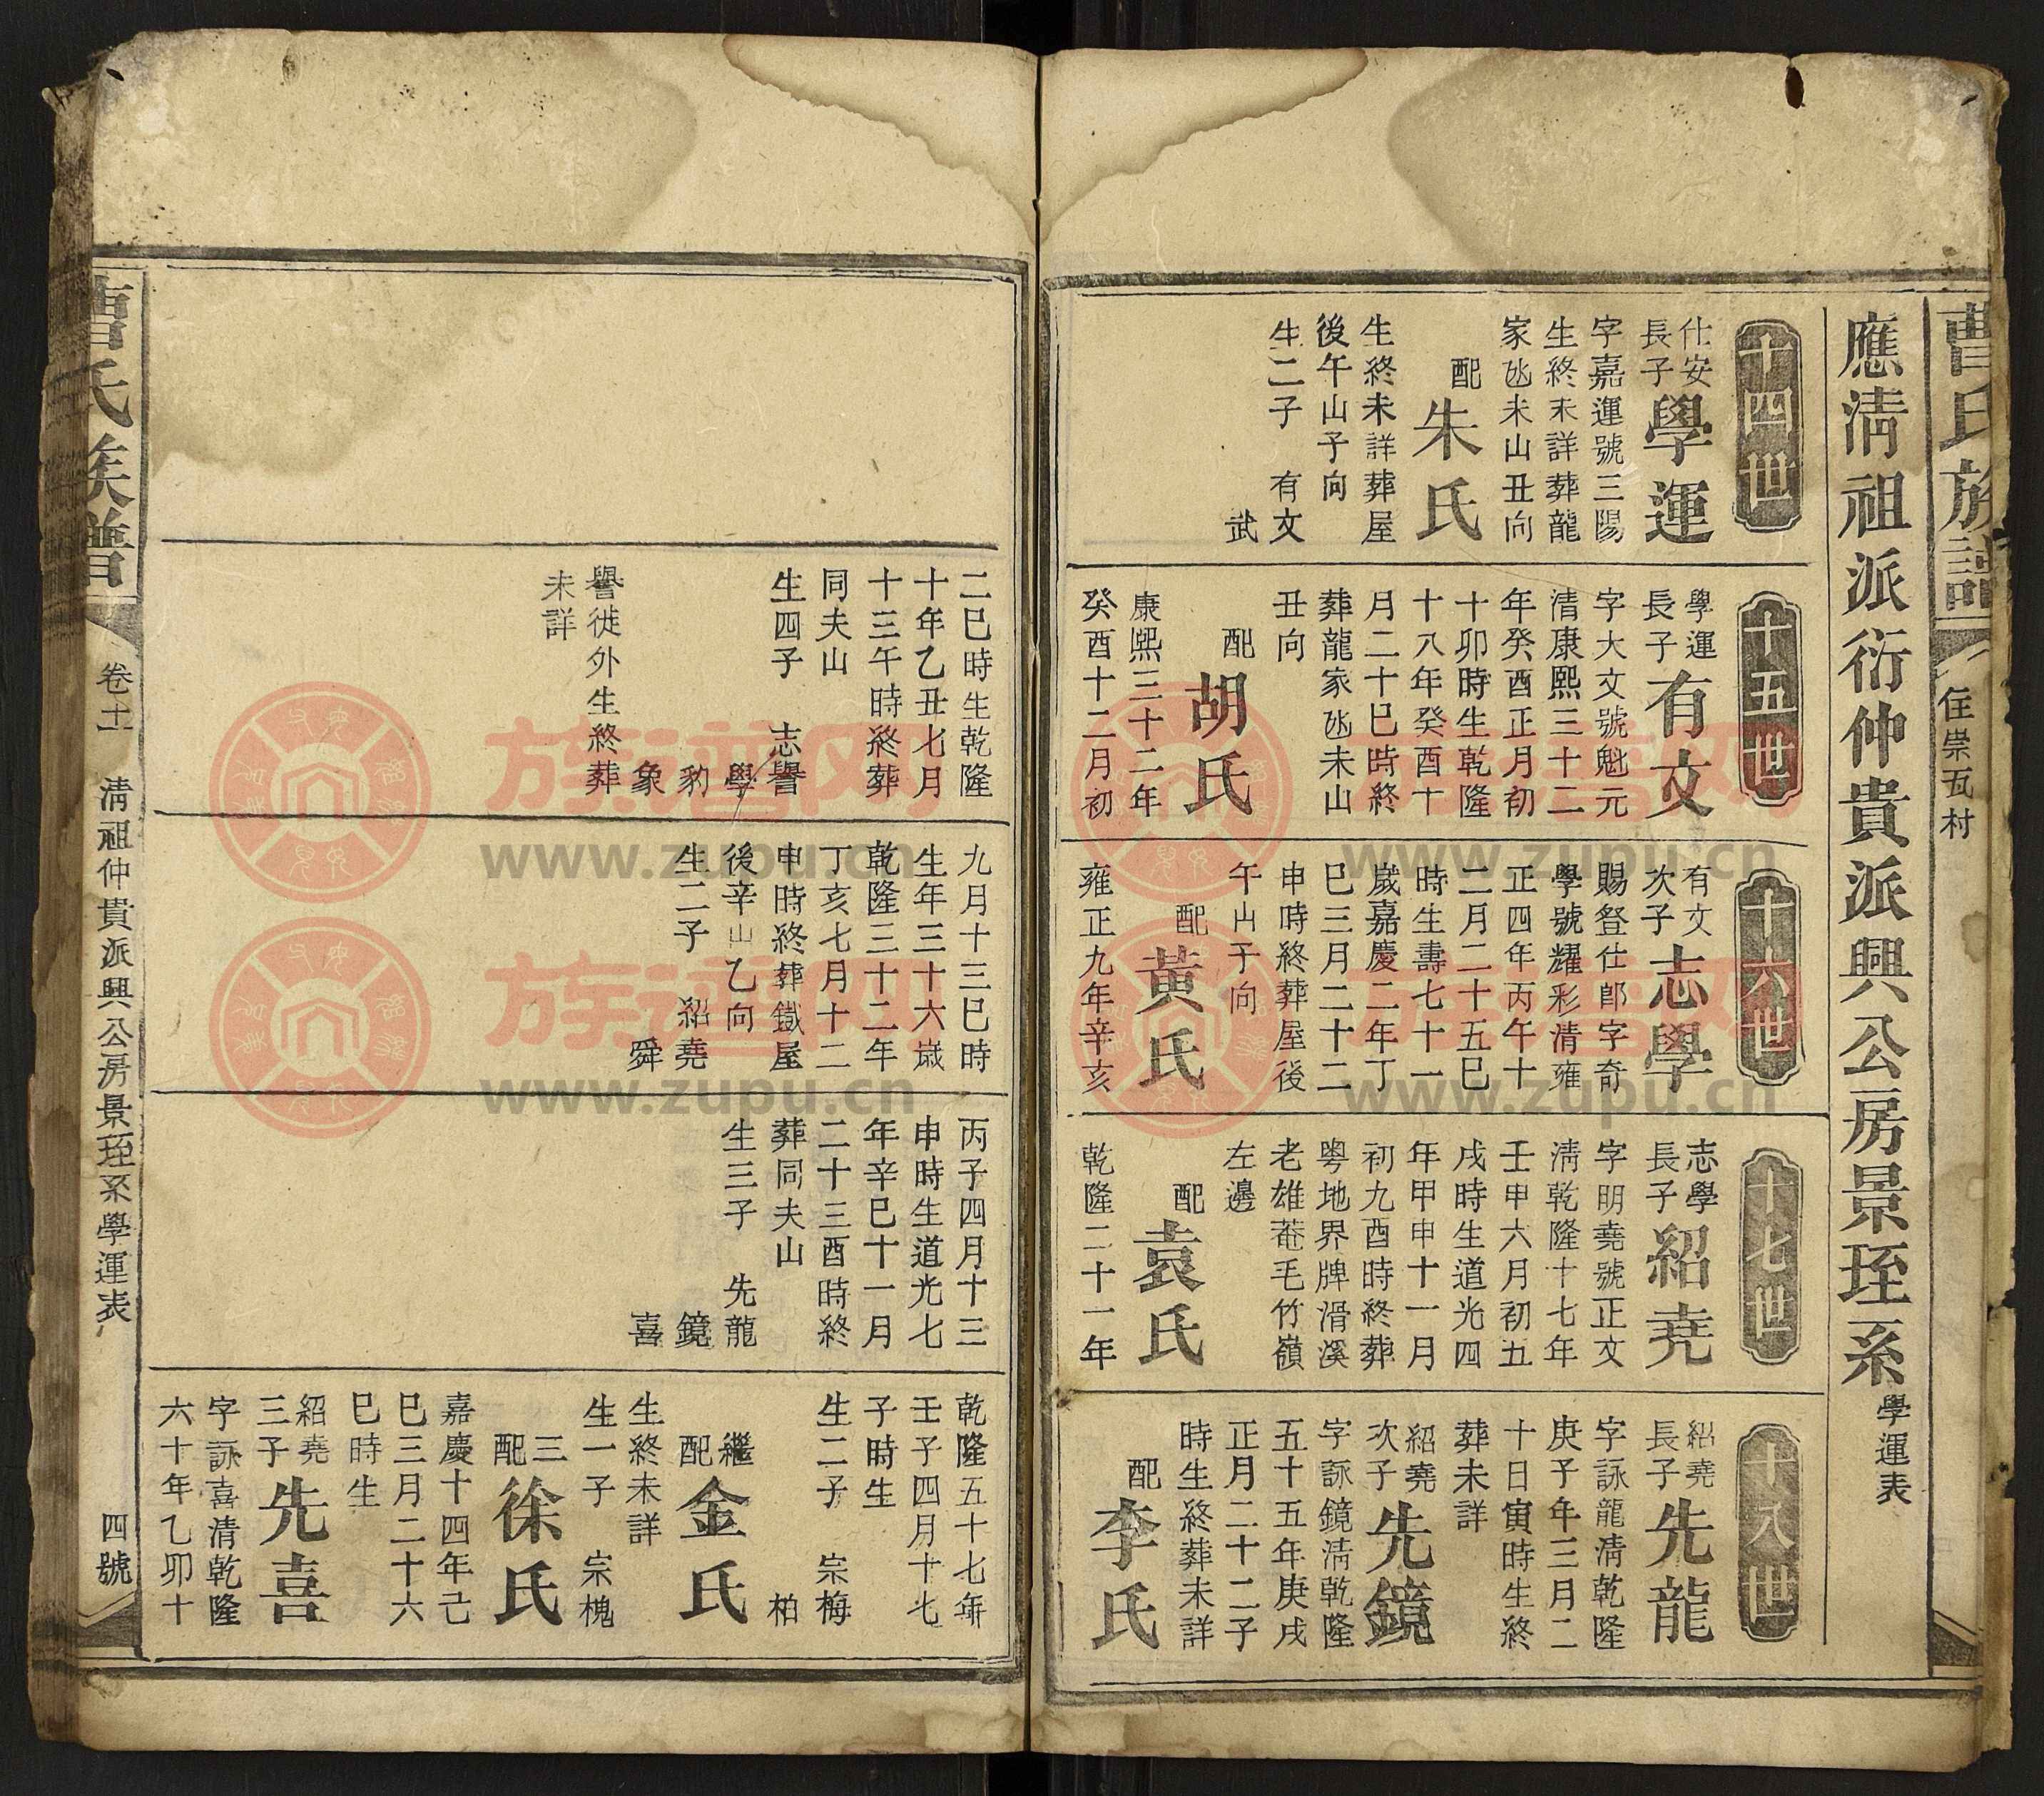 曹氏族譜
住崇瓦村
應清祖派衍仲貴派興公房景珄系學運表
十四世
仕安
長子
學運
字嘉運號三陽
生終未詳葬龍
家𡶶未山丑向
配
朱氏
生終未詳葬屋
後午山子向
生二子 有文
武
十五世
學運
長子
有文
字大文號魁元
清康熙三十二
年癸酉正月初
十卯時生乾隆
十八年癸酉十
月二十巳時終
葬龍家𡶶未山
丑向
配
胡氏
康熙三十二年
癸酉十二月初
十六世
有文
次子
志學
賜登仕郎字奇
學號耀彩清雍
正四年丙午十
二月二十五巳
時生壽七十一
歲嘉慶二年丁
巳三月二十二
申時終葬屋後
午山于向
配
黃氏
雍正九年辛亥
十七世
志學
長子
紹堯
字明堯號正文
清乾隆十七年
壬申六月初五
戌時生道光四
年甲申十一月
初九酉時終葬
粵地界牌滑溪
老雄菴毛竹嶺
左邊
配
袁氏
乾隆二十一年
十八世
紹堯
長子
先龍
字詠龍清乾隆
庚子年三月二
十日寅時生終
葬未詳
紹堯
次子
先鏡
字詠鏡清乾隆
五十五年庚戌
正月二十二子
時生終葬未詳
配
李氏
二巳時生乾隆
十年乙丑七月
十三午時終葬
同夫山
生四子 志譽
學
豹
象
譽徙外生終葬
未詳
九月十三巳時
生年三十六歲
乾隆三十二年
丁亥七月十二
申時終葬鐵屋
後辛山乙向
生二子 紹堯
舜
丙子四月十三
申時生道光七
年辛巳十一月
二十三酉時終
葬同夫山
生三子 先龍
鏡
喜
乾隆五十七年
壬子四月十七
子時生
生二子 宗梅
柏
繼
配
金氏
生終未詳
生一子 宗槐
三
配
徐氏
嘉慶十四年己
巳三月二十六
巳時生
紹堯
三子
先喜
字詠喜清乾隆
六十年乙卯十
曹氏族譜
卷十一 清祖仲貴派興公房景珄系學運表
四號
族譜网
www.zupu.cn
族譜网
www.zupu.cn
族譜网
www.zupu.cn
族譜网
www.zupu.cn